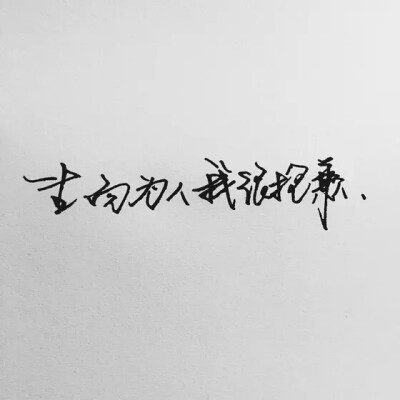 生而为人我很抱歉、